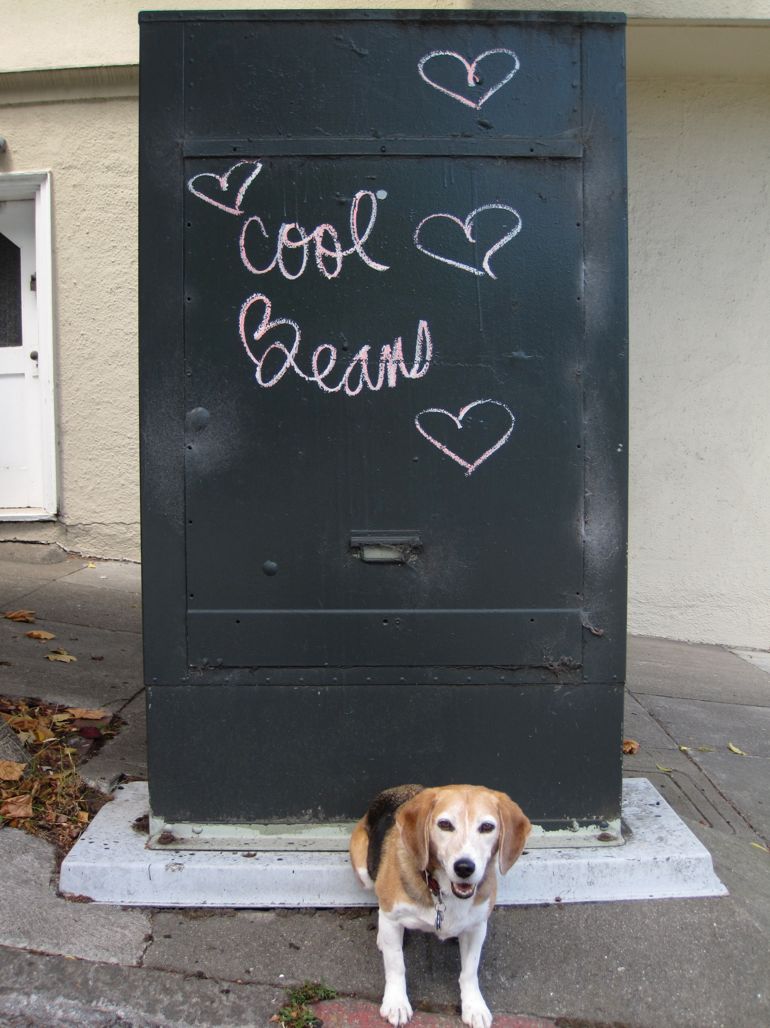 Cool
Beans